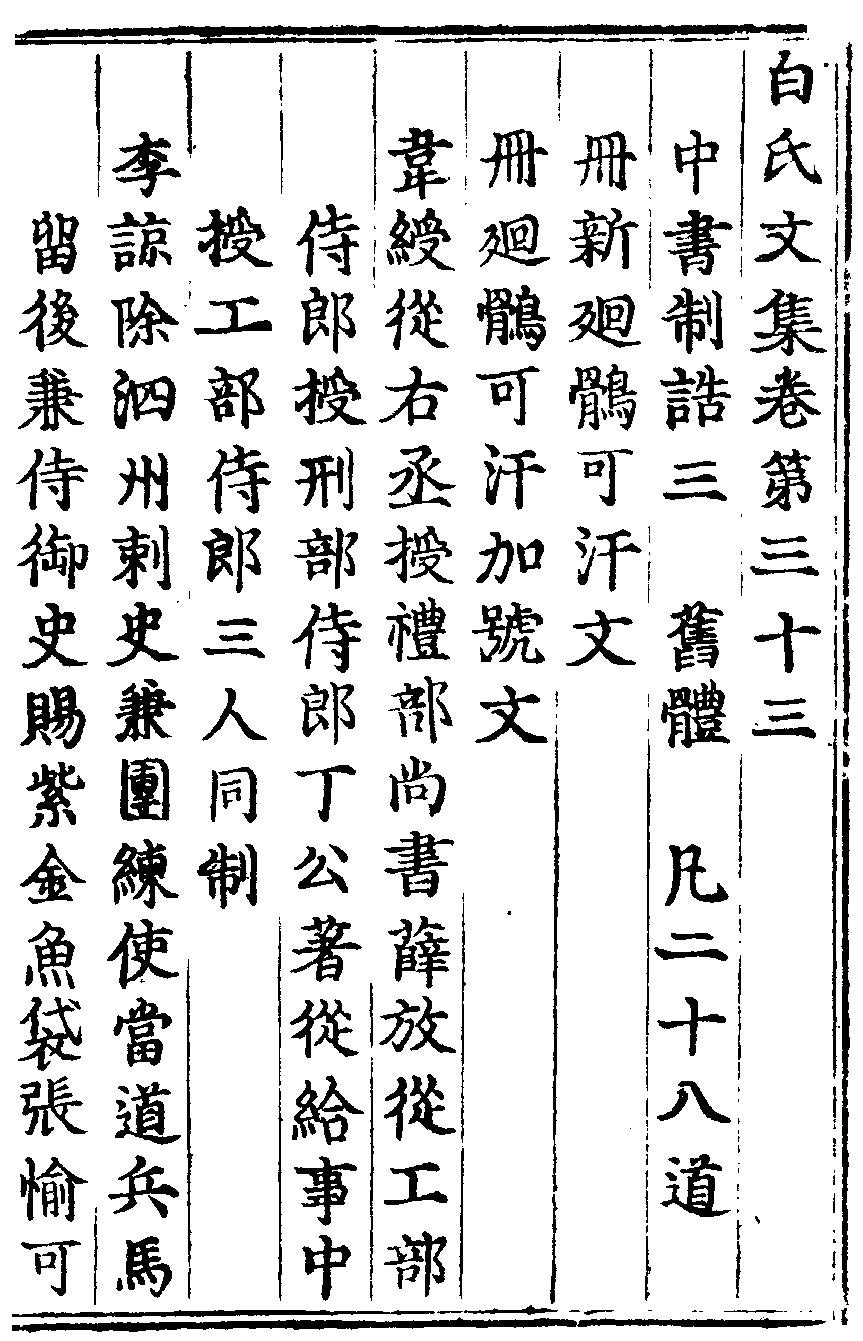 白氏文集卷第三十三
中書制誥三　舊體　凡二十八道
冊新廻鶻可汗文
冊廻鶻可汗加號文
韋綬從右丞授禮部尚書薛放從工部
侍郎授刑部侍郎丁公著從給事中
授工部侍郎三人同制
李諒除泗州刺史兼團練使當道兵馬
留後兼侍御史賜紫金魚袋張愉可